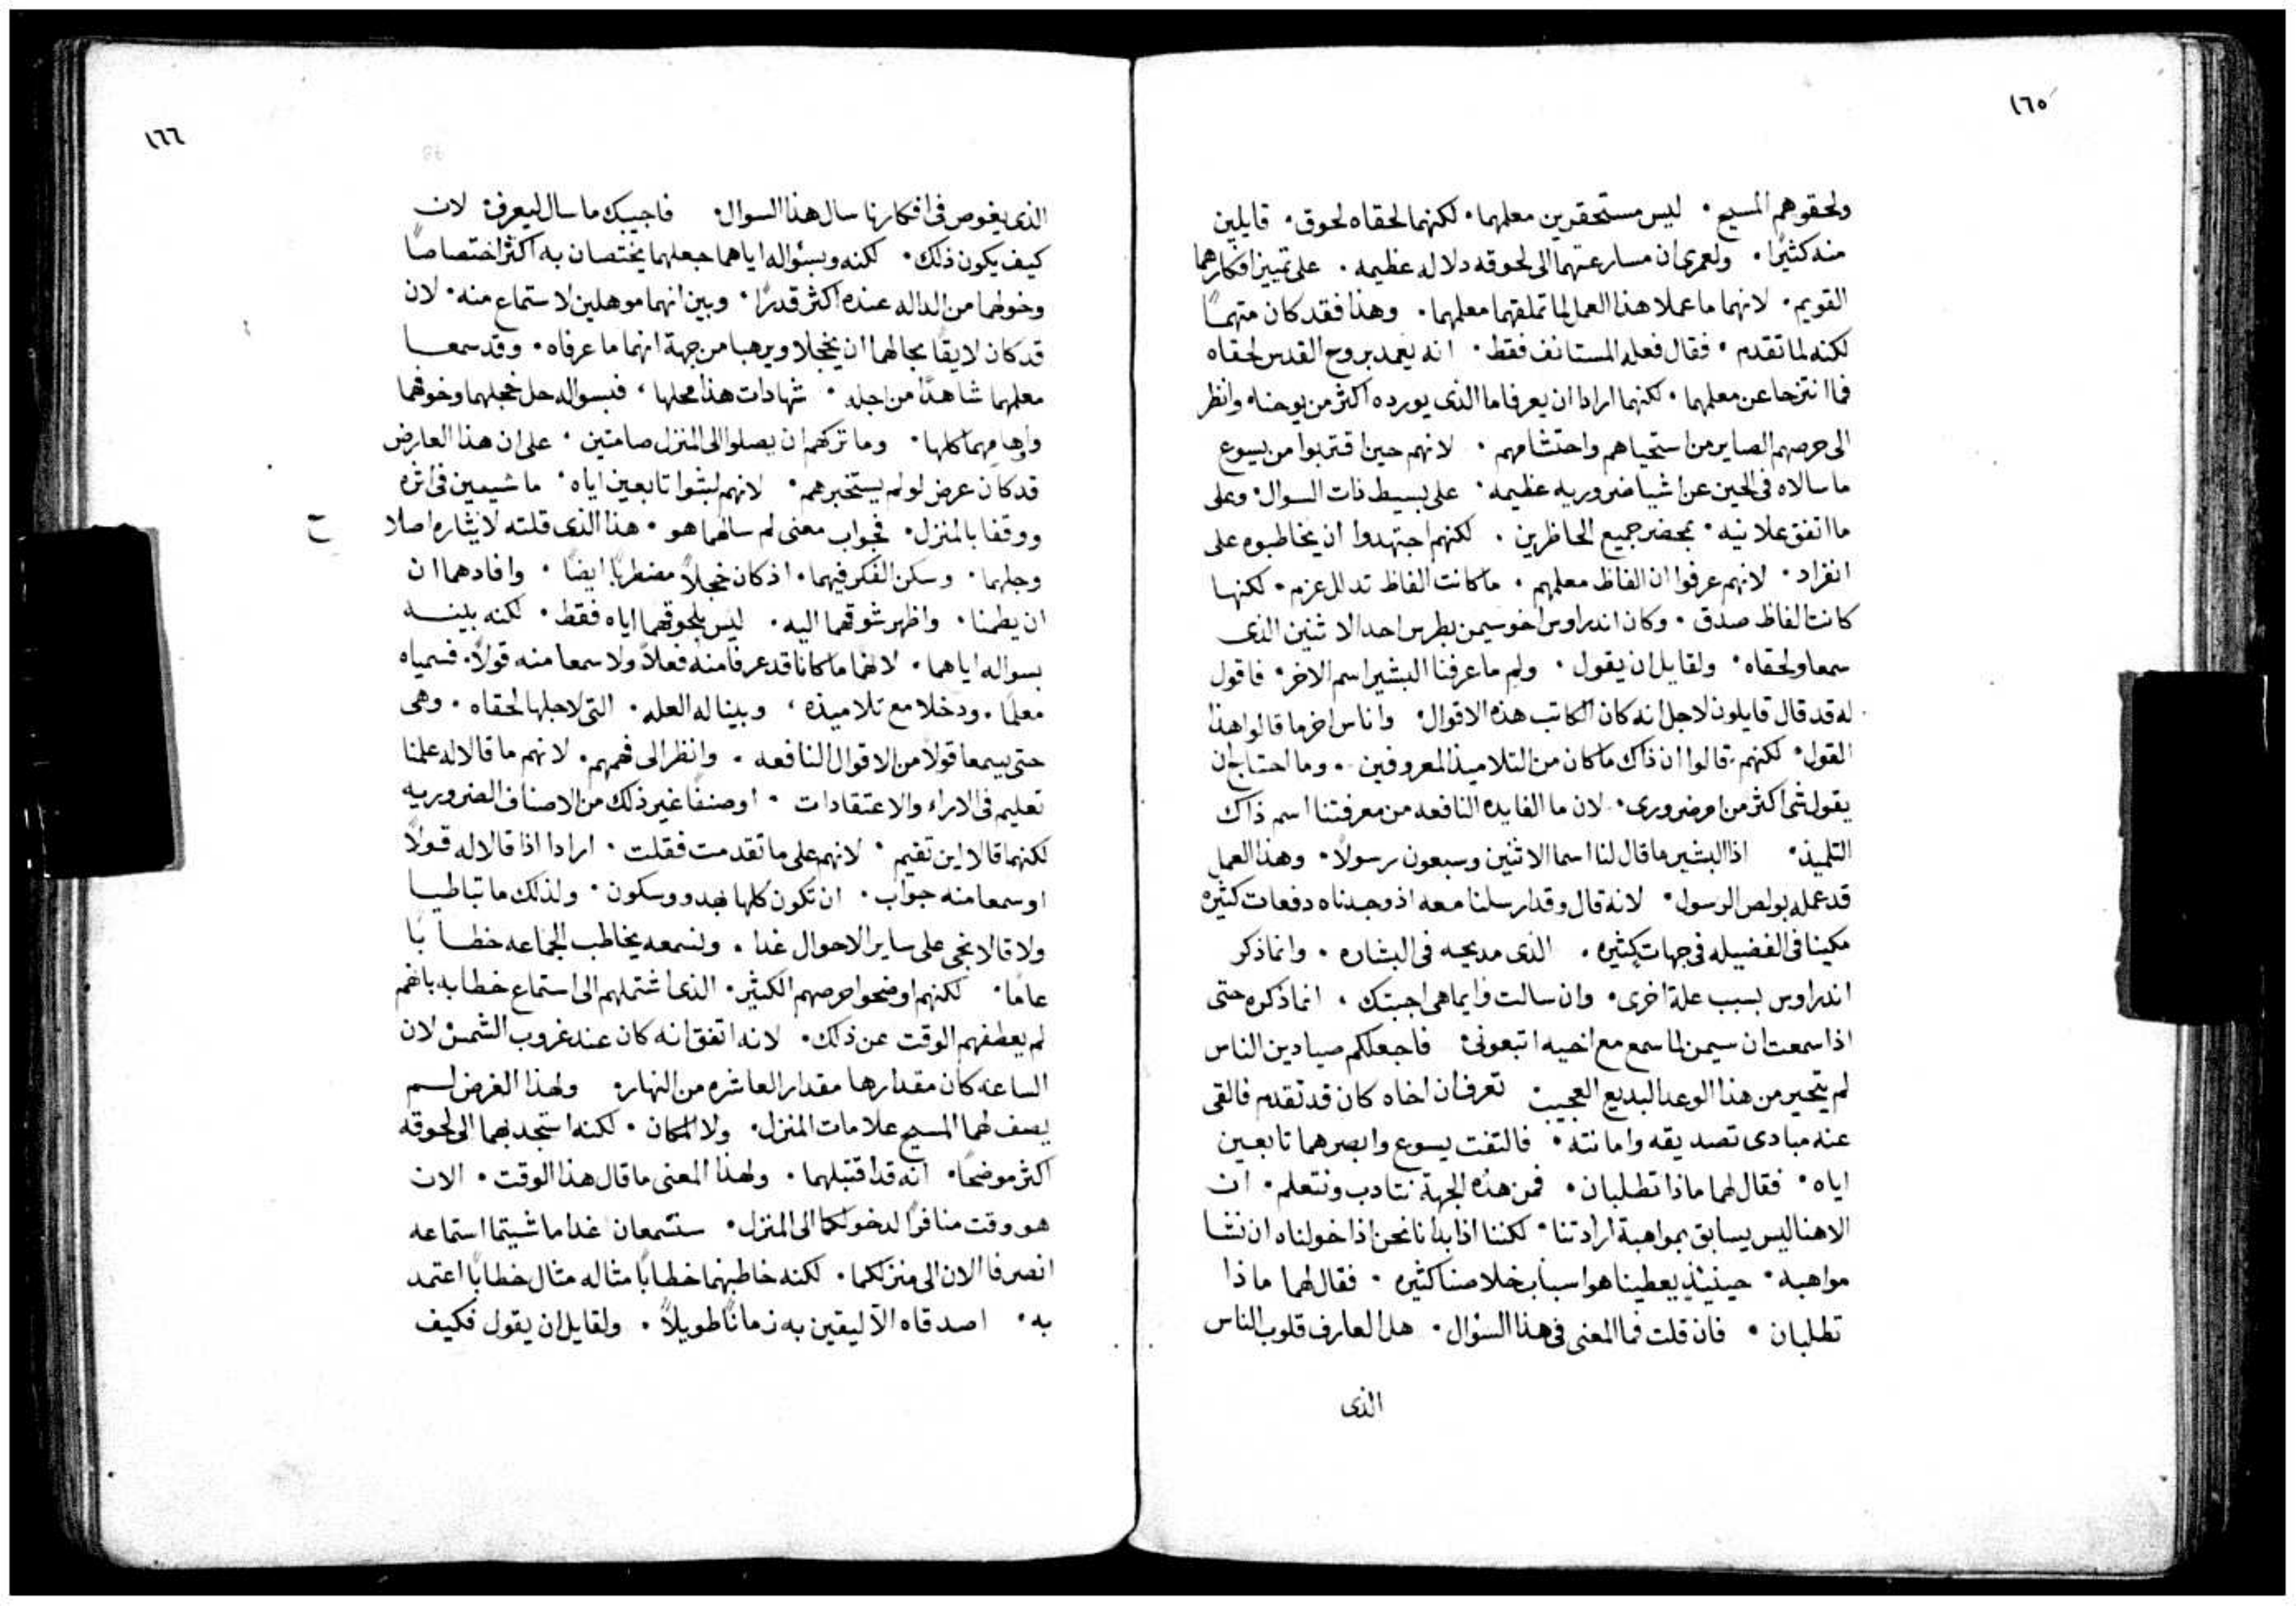 ١٦٥
ولحقوهم المسيح • ليس مستحقرين معلمهما • لكنهما لحقاه لحوق • قايلين
منه كثيرًا • ولعمري ان مسارعتهما الى لحوقه دلاله عظيمه • على تمييز افكارهما
القويم • لانهما ما عملا هذا العمل لما تملقهما معلمهما • وهذا فقد كان متهمًا
لكنه لما تقدم • فقال فعله المستانف فقط • انه يعمد بروح القدس لحقاه
فما انتزحا عن معلمهما • لكنهما ارادا ان يعرفا ما الذى يورده اكثر من يوحنا • وانظر
الى حرصهم الصاير من استحياهم واحتشامهم • لانهم حين اقتربوا من يسوع
ما سالاه فى الحين عن اشيا ضروريه عظيمه • على بسيط ذات السوال • وعلى
ما اتفق علانيه • بمحضر جميع الحاظرين • لكنهم اجتهدوا ان يخاطبوه على
انفراد • لانهم عرفوا ان الفاظ معلمهم • ما كانت الفاظ تدلل عزم • لكنها
كانت الفاظ صدق • وكان اندراوس اخو سيمن بطرس احد الاثنين الذى
سمعا ولحقاه • ولقايل ان يقول • ولم ما عرفنا البشير اسم الاخر • فاقول
له قد قال قايلون لاجل انه كان الكاتب هذه الاقوال • واناس اخر ما قالوا هذا
القول • لكنهم قالوا ان ذاك ما كان من التلاميذ المعروفين • وما احتاج ان
يقول شى اكثر من امر ضرورى • لان ما الفايده النافعه من معرفتنا اسم ذاك
التلميذ • اذ البشير ما قال لنا اسما الاثنين وسبعون رسولًا • وهذا العمل
قد عمله بولص الرسول • لانه قال وقد ارسلنا معه اذ وجدناه دفعات كثيره
مكينا فى الفضيله فى جهات كثيره • الذى مديحه فى البشاره • وانما ذكر
اندراوس بسبب علة اخرى • وان سالت وايما هى اجبتك • انما ذكره حتى
اذا سمعت ان سيمن لما سمع مع اخيه اتبعونى • فاجعلكم صيادين الناس
لم يتحير من هذا الوعد البديع العجيب • تعرف ان اخاه كان قد تقدم فالقى
عنه مبادى تصديقه وامانته • فالتفت يسوع وابصرهما تابعين
اياه • فقال لهما ماذا تطلبان • فمن هذه الجهة نتادب ونتعلم • ان
الاهنا ليس يسابق بمواهبه ارادتنا • لكننا اذا بدانا نحن اذا خولناه ان نشا
مواهبه • حينيذٍ يعطينا هو اسباب خلاصنا كثيره • فقال لهما ماذا
تطلبان • فان قلت فما المعنى فى هذا السؤال • هل العارف قلوب الناس
الذى
١٦٦
الذى يغوص فى افكارنا سال هذا السوال • فاجيبك ما سال ليعرف • لان
كيف يكون ذلك • لكنه وبسئواله اياهما جعلهما يختصان به اكثر اختصاصًا
وخولهما من الداله عنده اكثر قدرًا • وبين انهما موهلين لاستماع منه • لان
قد كان لايقًا بحالهما ان يخجلا ويرهبا من جهة انهما ما عرفاه • وقد سمعا
معلمهما شاهدًا من اجله • شهادات هذا محلها • فبسواله حل خجلهما وخوفهما
واوهامهما كلها • وما تركهم ان يصلوا الى المنزل صامتين • على ان هذا العارض
قد كان عرض لو لم يستخبرهم • لانهم لبثوا تابعين اياه • ماشيين فى اثره
ووقفا بالمنزل • فجواب معنى لم سالهما هو • هذا الذى قلته لايثاره اصلا
وجلهما • وسكن الفكر فيهما • اذ كان خجلاً مضطربًا ايضًا • وافادهما ان
ان يطمنا • واظهر شوقهما اليه • ليس بلحوقهما اياه فقط • لكنه بينه
بسواله اياهما • لانهما ما كانا قد عرفا منه فعلاً ولا سمعا منه قولاً • فسمياه
معلمًا • ودخلا مع تلاميذه • وبينا له العله • التى لاجلها لحقاه • وهى
حتى يسمعا قولاً من الاقوال النافعه • وانظر الى فهمهم • لانهم ما قالا له علمنا
تعليم فى الاراء والاعتقادات • او صنفًا غير ذلك من الاصناف الضروريه
لكنهما قالا اين تقيم • لانهم على ما تقدمت فقلت • ارادا اذا قالا له قولًا
او سمعا منه جواب • ان تكون كلها بهدو وسكون • ولذلك ما تباطيا
ولا قالا نجى على ساير الاحوال غدا • ونسمعه يخاطب الجماعه خطابًا
عامًا • لكنهم اوضحوا حرصهم الكثير • الذى اشتملهم الى استماع خطابه بانهم
لم يعطفهم الوقت عن ذلك • لانه اتفق انه كان عند غروب الشمس لان
الساعه كان مقدارها مقدار العاشره من النهار • ولهذا الغرض لم
يصف لهما المسيح علامات المنزل • ولا المكان • لكنه استجذبهما الى لحوقه
اكثر موضحًا • انه قد اقتبلهما • ولهذا المعنى ما قال هذا الوقت • الان
هو وقت منافرًا لدخولكما الى المنزل • ستسمعان غدا ما شيتما استماعه
انصرفا الان الى منزلكما • لكنه خاطبهما خطابًا مثاله مثال خطابًا اعتمد
به • اصدقاه الآليقين به زمانًا طويلاً • ولقايل ان يقول فكيف